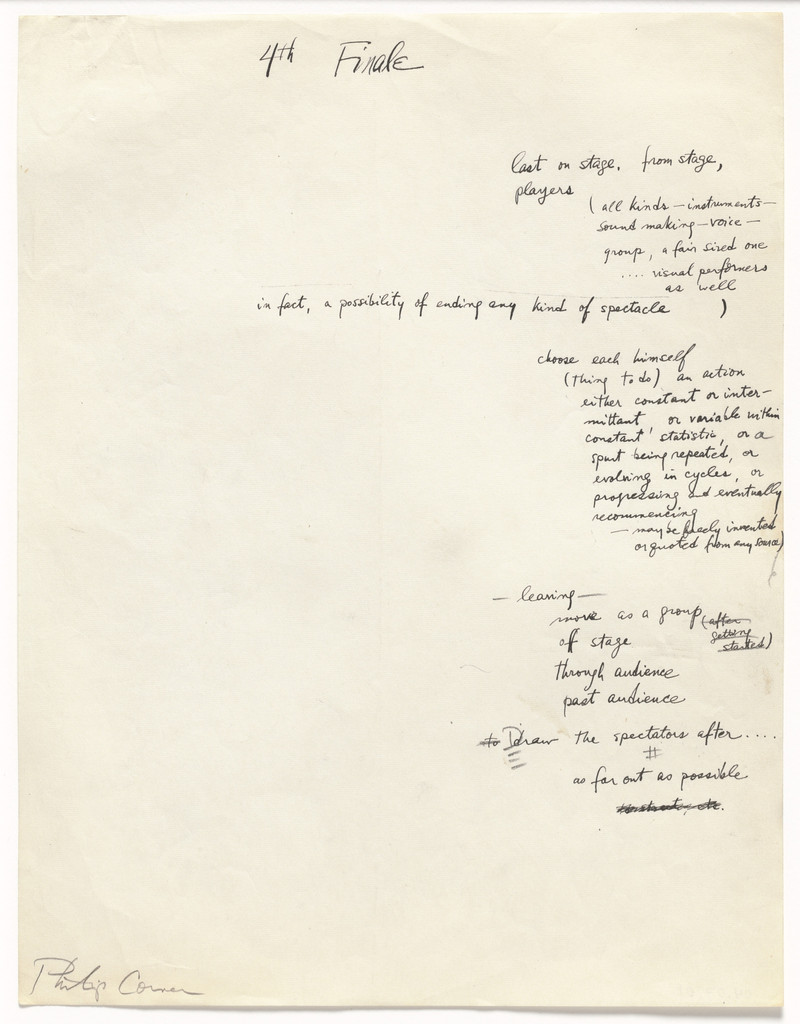 4th Finale
last on stage. from stage,
players
( all kinds — instruments —
sound making — voice —
group, a fair sized one
.... visual performers
as well
in fact, a possibility of ending any kind of spectacle )
choose each himself
(thing to do) an action
either constant or inter-
mittant or variable within
constant statistic, or a
spurt being repeated, or
evolving in cycles, or
progressing and eventually
recommencing
— maybe freely invented
or quoted from any source)
— leaving —
move as a group (after
getting
started)
off stage
through audience
past audience
to Draw the spectators after ....
#
as far out as possible
etc.
Philip Corner